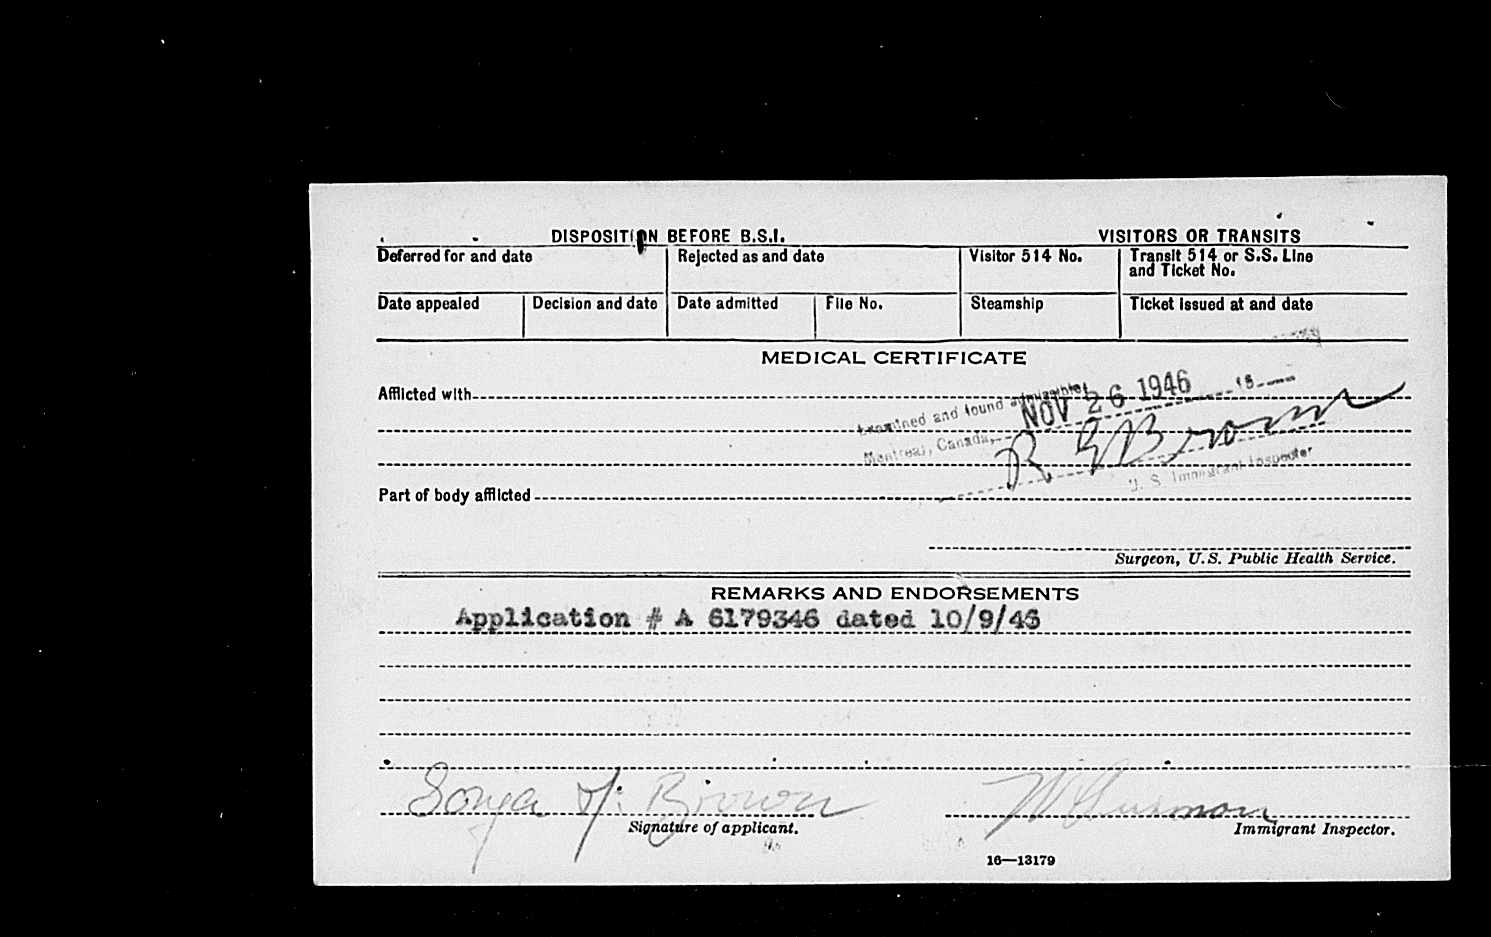 DISPOSITION BEFORE B.S.I. VISITORS OR TRANSITS
Deferred for and date Rejected as and date Visitor 514 No. Transit 514 or S.S. Line and Ticket No.
Date appealed Decision and date Date admitted File No. Steamship Ticket issued at and date
MEDICAL CERTIFICATE
Afflicted with
Examined and found admissible
NOV 26 1946
Montreal, Canada,
R G Brown
U. S. Immigrant Inspector
Part of body afflicted
Surgeon, U.S. Public Health Service.
REMARKS AND ENDORSEMENTS
Application # A 6179346 dated 10/9/46
Sonja Brown
Signature of applicant. Immigrant Inspector.
16—13179